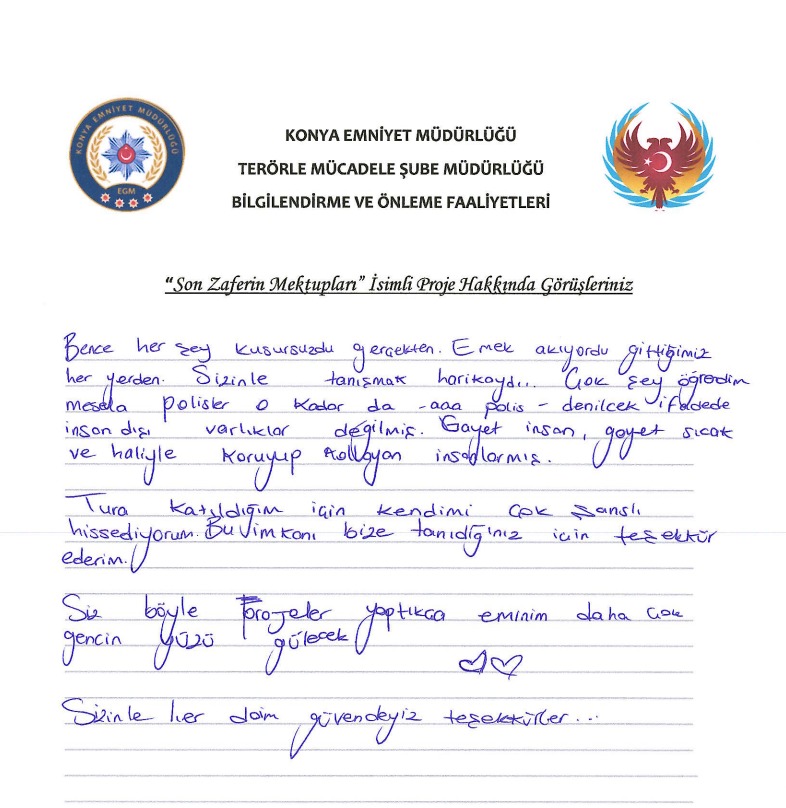 KONYA EMNİYET MÜDÜRLÜĞÜ
EGM
KONYA EMNİYET MÜDÜRLÜĞÜ
TERÖRLE MÜCADELE ŞUBE MÜDÜRLÜĞÜ
BİLGİLENDİRME VE ÖNLEME FAALİYETLERİ
“Son Zaferin Mektupları” İsimli Proje Hakkında Görüşleriniz
Bence her şey kusursuzdu gerçekten. Emek akıyordu gittiğimiz
her yerden. Sizinle tanışmak harikaydı... Çok şey öğredim
mesela polisler o kadar da -aaa polis- denilcek ifadede
insan dışı varlıklar değilmiş. Gayet insan, gayet sıcak
ve haliyle koruyup kollayan insanlarmış.
Tura katıldığım için kendimi çok şanslı
hissediyorum. Bu imkanı bize tanıdığınız için teşekkür
ederim.
Siz böyle projeler yaptıkça eminim daha çok
gencin yüzü gülecek
Sizinle her daim güvendeyiz teşekkürler...